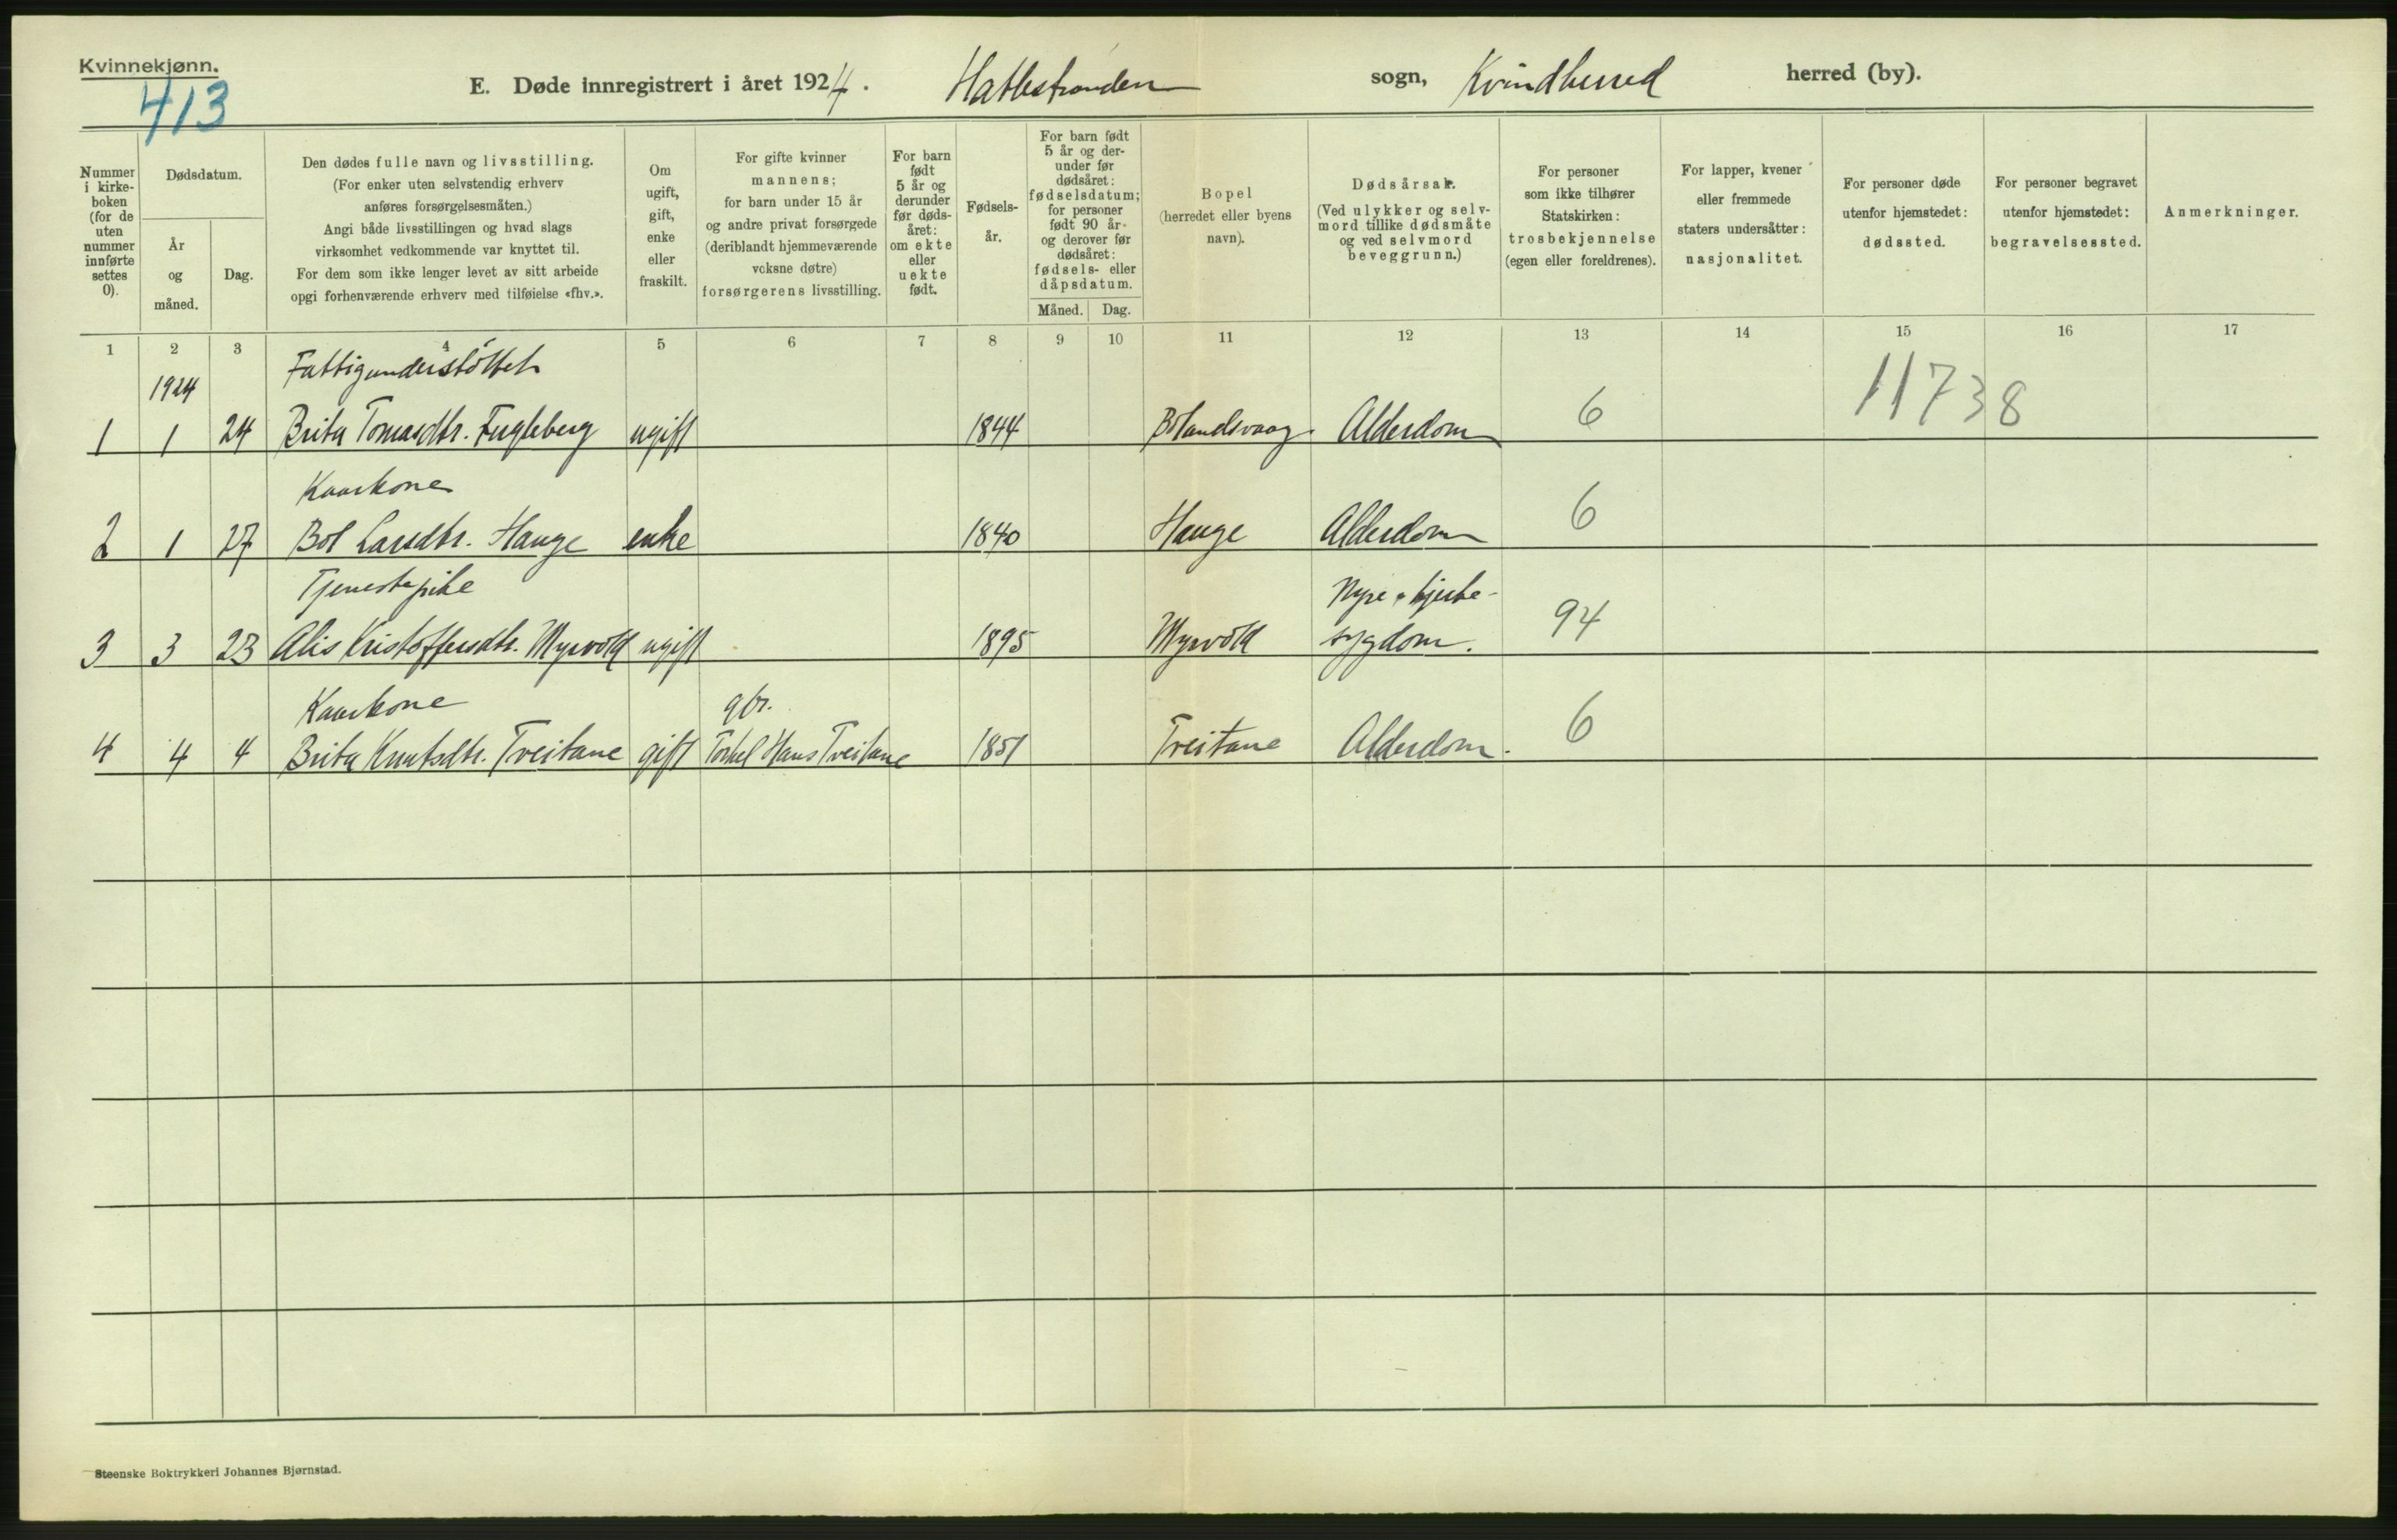 Kvinnekjønn.
413
E. Døde innregistrert i året 1924. Hatlestranden sogn, Kvindherred herred (by).
Nummer i kirkeboken (for de uten nummer innførte settes 0).
Dødsdatum.
År og måned.
Dag.
Den dødes fulle navn og livsstilling.
(For enker uten selvstendig erhverv
anføres forsørgelsesmåten.)
Angi både livsstillingen og hvad slags
virksomhet vedkommende var knyttet til.
For dem som ikke lenger levet av sitt arbeide
opgi forhenværende erhverv med tilføielse «fhv.».
Om
ugift,
gift,
enke
eller
fraskilt.
For gifte kvinner
mannens;
for barn under 15 år
og andre privat forsørgede
(deriblandt hjemmeværende
voksne døtre)
forsørgerens livsstilling.
For barn
født
5 år og
derunder
før døds-
året:
om ekte
eller
uekte
født.
Fødsels-
år.
For barn født
5 år og der-
under før
dødsåret:
fødselsdatum;
for personer
født 90 år
og derover før
dødsåret:
fødsels- eller
dåpsdatum.
Måned. Dag.
Bopel
(herredet eller byens
navn).
Dødsårsak.
(Ved ulykker og selv-
mord tillike dødsmåte
og ved selvmord
beveggrunn.)
For personer
som ikke tilhører
Statskirken:
trosbekjennelse
(egen eller foreldrenes).
For lapper, kvener
eller fremmede
staters undersåtter:
nasjonalitet.
For personer døde
utenfor hjemstedet:
dødssted.
For personer begravet
utenfor hjemstedet:
begravelsessted.
Anmerkninger.
1 2 3 4 5 6 7 8 9 10 11 12 13 14 15 16 17
1924 Fattigunderstöttet 11738
1 1 24 Brita Tomasdtr. Fugleberg ugift 1844 Ölandsvaag. Alderdom 6
Kaarkone
2 1 27 Bol Larsdtr. Hauge enke 1840 Hauge Alderdom 6
Tjenestepike Nyre & hjerte-
3 3 23 Alis Kristoffersdtr. Myrvold ugift 1895 Myrvold sygdom. 94
Kaarkone gbr.
4 4 4 Brita Knutsdtr. Tveitane gift Torkel Hans Tveitane 1851 Tveitane Alderdom. 6
Steenske Boktrykkeri Johannes Bjørnstad.